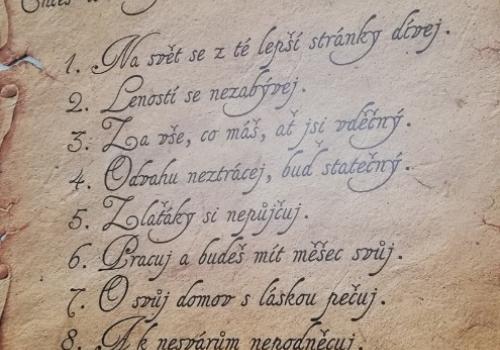 1. Na svět se z té lepší stránky dívej.
2. Leností se nezabývej.
3. Za vše, co máš, ať jsi vděčný.
4. Odvahu neztrácej, buď statečný.
5. Zlaťáky si nepůjčuj.
6. Pracuj a budeš mít měšec svůj.
7. O svůj domov s láskou pečuj.
8. A k nesvárům nepodněcuj.